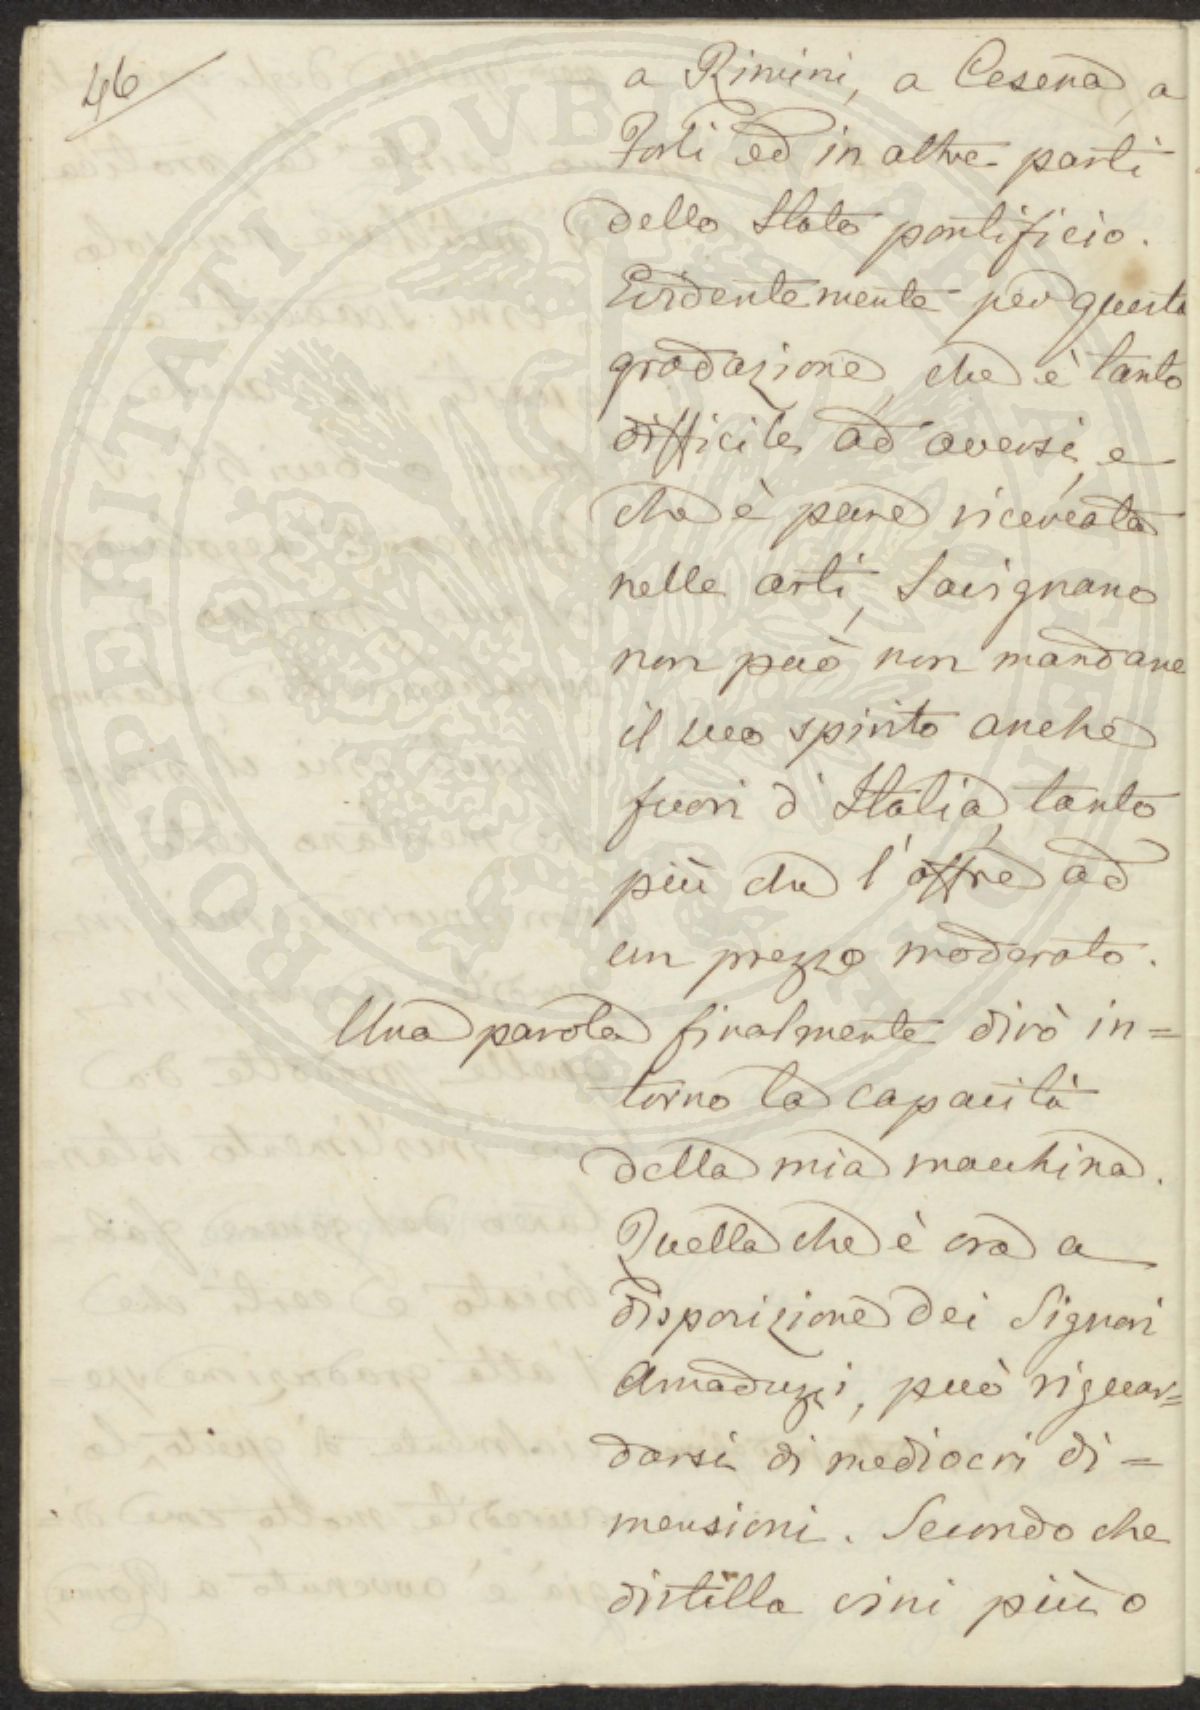 46
a Rimini, a Cesena, a
Forlì ed in altre parti
dello Stato pontificio.
Evidentemente per questa
gradazione, che è tanto
difficile ad aversi, e
che è pure ricercata
nelle arti, Savignano
non può non mandare
il suo spirito anche
fuori d'Italia, tanto
più che l'offre ad
un prezzo moderato.
Una parola finalmente dirò in=
torno la capacità
della mia macchina.
Quella che è ora a
disposizione dei Signori
Amaduzzi, può riguar=
darsi di mediocri di=
mensioni. Secondo che
distilla vini più o
PROSPERITATI PVBLICAE